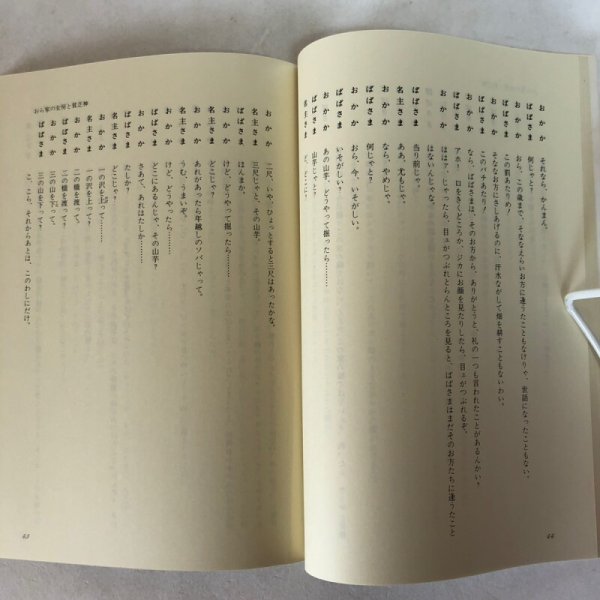 おかか　それなら、かんまん。
ばばさま　何じゃと？
おかか　おら、この歳まで、そななえらいお方に逢うたこともなけりゃ、世話になったこともない。
ばばさま　この罰あたりめ！
おかか　そななお方にさしあげるのに、汗水ながして畑を耕すこともないわい。
ばばさま　このバチあたり！
おかか　なら、ばばさまは、そのお方から、ありがとうと、礼の一つも言われたことがあるんかい？
ばばさま　アホ！口をきくどころか、ジカにお顔を見たりしたら、目ェがつぶれるぞ。
おかか　ほほァ、じゃったら、目ェがつぶれとらんところを見ると、ばばさまはまだそのお方たちに逢うたこと
はないんじゃな。
ばばさま　当り前じゃ？
名主さま　ああ、尤もじゃ。
おかか　なら、やめじゃ。
ばばさま　何じゃと？
おかか　おら、今、いそがしい。
ばばさま　いそがしい？
おかか　あの山芋、どうやって掘ったら……
ばばさま　山芋じゃと？
名主さま　ど、どこに？
44
おら家の女房と貧乏神
おかか　二尺、いや、ひょっとすると三尺はあったかな。
名主さま　三尺じゃと、その山芋。
ばばさま　ほんまか。
おかか　けど、どうやって掘ったら………
ばばさま　どこじゃ？
おかか　あれがあったら年越しのソバじゃって。
名主さま　うむ、うまいぞ。
おかか　けど、どうやったら……
ばばさま　どこにあるんじゃ、その山芋は？
おかか　さあて、あれはたしか……
ばばさま　たしか？
名主さま　どこじゃ？
おかか　一の沢を上って……
名主さま　一の沢を上って？
おかか　二の橋を渡って、
ばばさま　二の橋を渡って？
おかか　三の山を下って、
ばばさま　三の山を下って？
こ、これ、それからあとは、このわしにだけ。
45